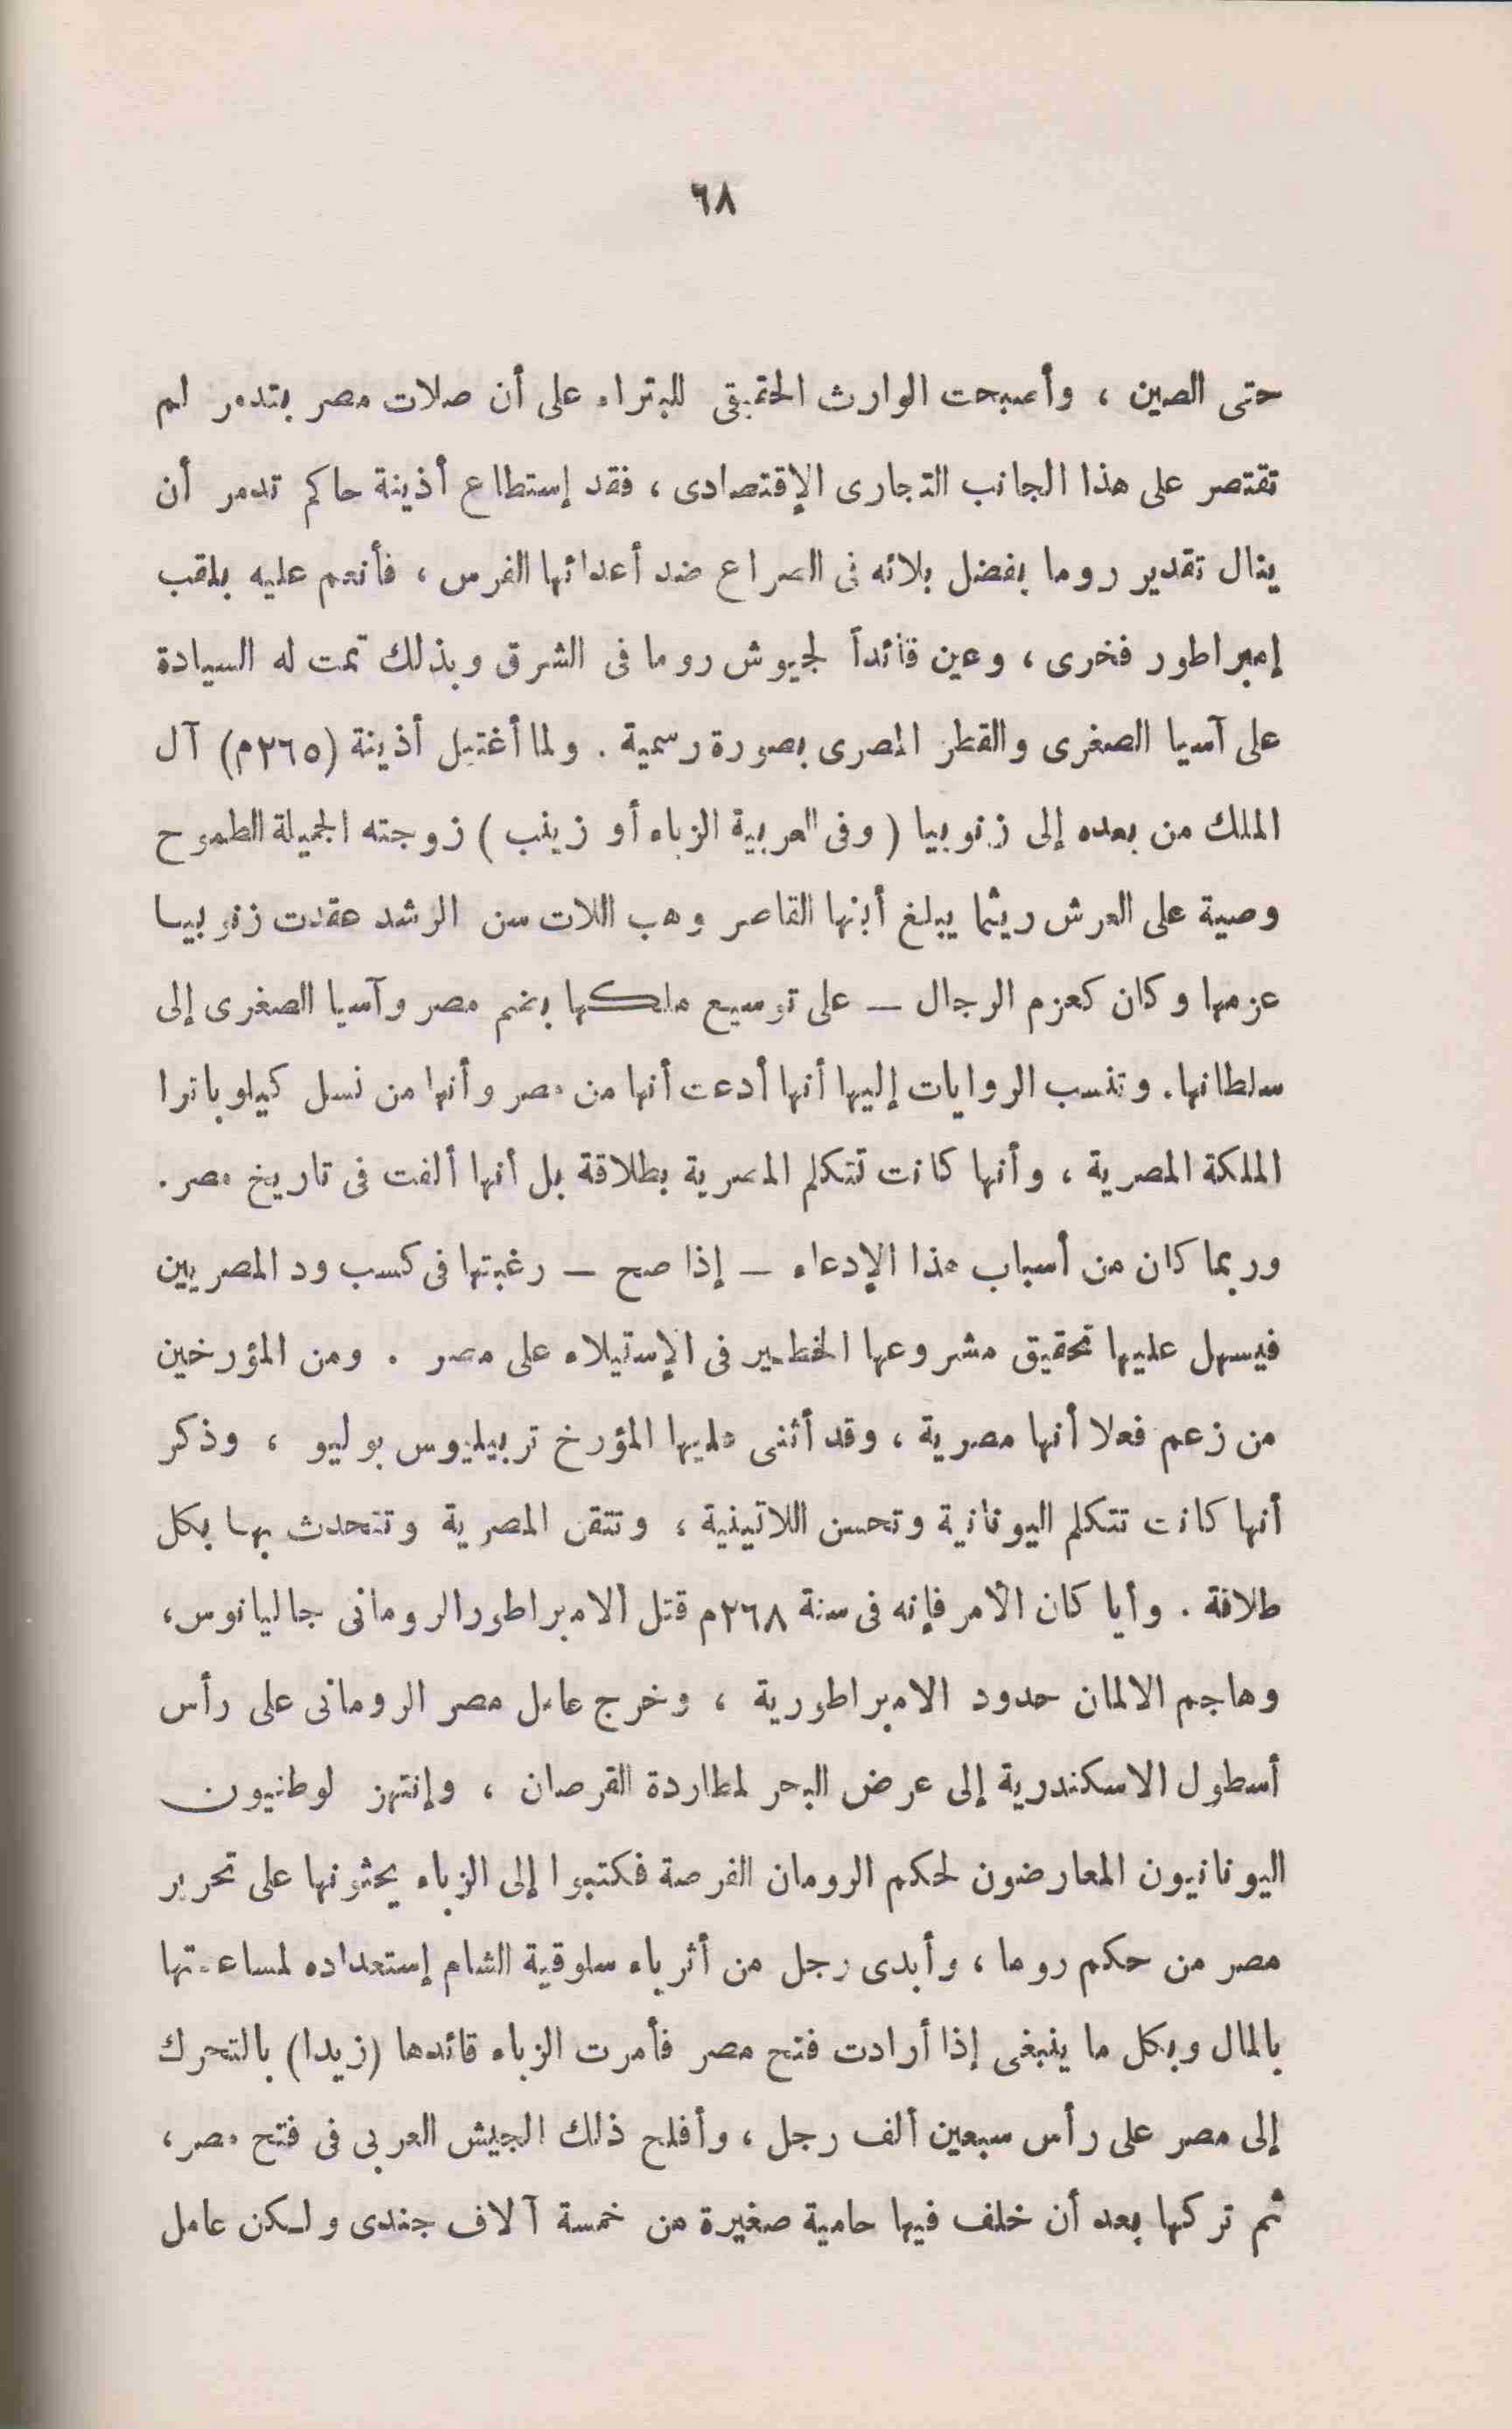 ٦٨
حتى الصين ، وأصبحت الوارث الحقيقى للبتراء على أن صلات مصر بتدمر لم
تقتصر على هذا الجانب التجارى الإقتصادى ، فقد إستطاع أذينة حاكم تدمر أن
ينال تقدير روما بفضل بلائه فى الصراع ضد أعدائها الفرس ، فأنعم عليه بلقب
إمبراطور فخرى ، وعين قائداً لجيوش روما فى الشرق وبذلك تمت له السيادة
على آسيا الصغرى والقطر المصرى بصورة رسمية . ولما أغتيل أذينة (٢٦٥م) آل
الملك من بعده إلى زنوبيا ( وفى العربية الزباء أو زينب ) زوجته الجميلة الطموح
وصية على العرش ريثما يبلغ أبنها القاصر وهب اللات سن الرشد عقدت زنوبيا
عزمها وكان كعزم الرجال – على توسيع ملكها بضم مصر وآسيا الصغرى إلى
سلطانها. وتنسب الروايات إليها أنها أدعت أنها من مصر وأنها من نسل كيلوباترا
الملكة المصرية ، وأنها كانت تتكلم المصرية بطلاقة بل أنها ألفت فى تاريخ مصر.
وربما كان من أسباب هذا الإدعاء – إذا صح – رغبتها فى كسب ود المصريين
فيسهل عليها تحقيق مشروعها الخطير فى الإستيلاء على مصر . ومن المؤرخين
من زعم فعلا أنها مصرية ، وقد أثنى عليها المؤرخ تربيليوس بوليو ، وذكر
أنها كانت تتكلم اليونانية وتحسن اللاتينية ، وتتقن المصرية وتتحدث بها بكل
طلاقة . وأيا كان الأمر فإنه فى سنة ٢٦٨م قتل الامبراطور الرومانى جاليانوس،
وهاجم الالمان حدود الامبراطورية ، وخرج عامل مصر الرومانى على رأس
أسطول الاسكندرية إلى عرض البحر لمطاردة القرصان ، وإنتهز لوطنيون
اليونانيون المعارضون لحكم الرومان الفرصة فكتبوا إلى الزباء يحثونها على تحرير
مصر من حكم روما ، وأبدى رجل من أثرياء سلوقية الشام إستعداده لمساعدتها
بالمال وبكل ما ينبغى إذا أرادت فتح مصر فأمرت الزباء قائدها (زيدا) بالتحرك
إلى مصر على رأس سبعين ألف رجل ، وأفلح ذلك الجيش العربى فى فتح مصر،
ثم تركها بعد أن خلف فيها حامية صغيرة من خمسة آلاف جندى ولكن عامل